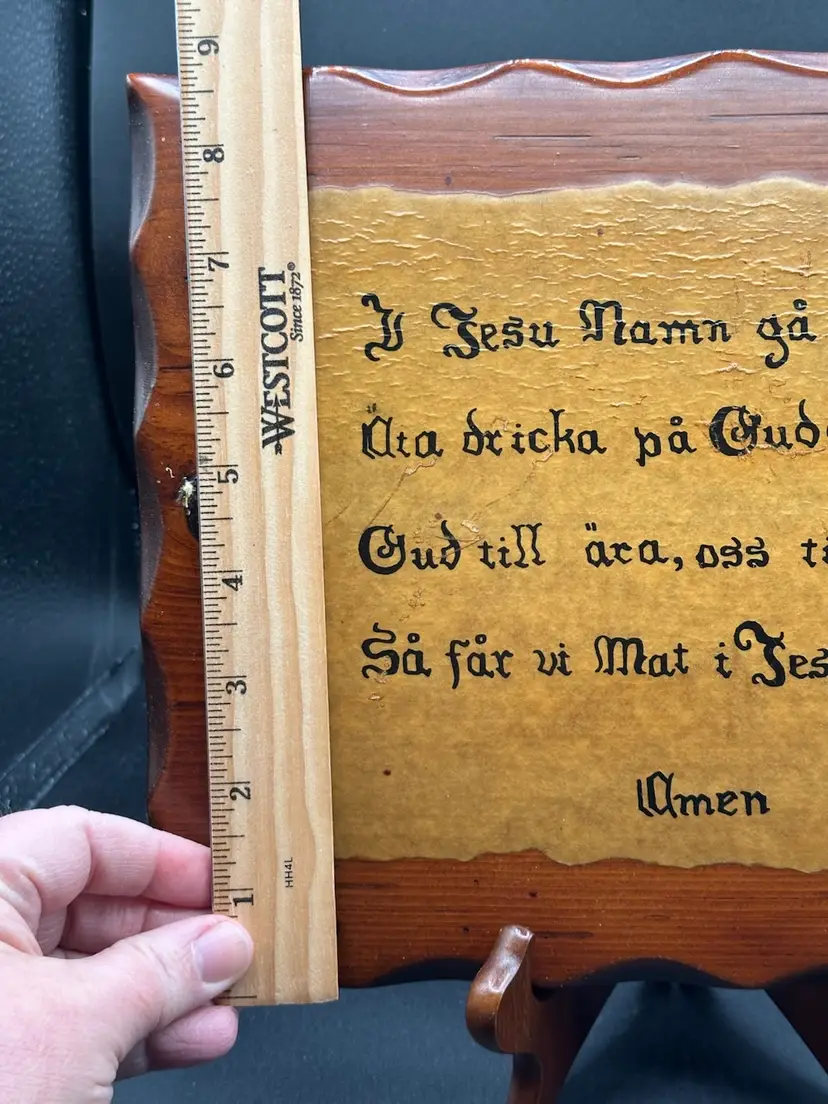 I Jesu Namn gå
Äta dricka på Gud
Gud till ära, oss
Så får vi Mat i Jes
Amen
WESTCOTT
Since 1872®
HH4L
9
8
7
6
5
4
3
2
1